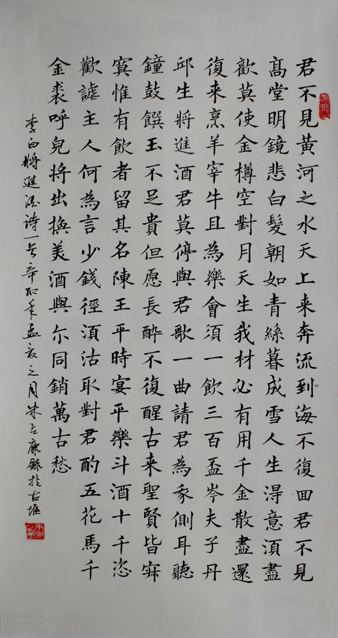 君不見黃河之水天上来奔流到海不復回君不見
高堂明鏡悲白髮朝如青絲暮成雪人生得意須盡
歡莫使金樽空對月天生我材必有用千金散盡還
復来烹羊宰牛且為樂會須一飲三百盃岑夫子丹
邱生將進酒君莫停與君歌一曲請君為我側耳聽
鐘鼓饌玉不足貴但愿長醉不復醒古来聖賢皆寐
寞惟有飲者留其名陳王平時宴平樂斗酒十千恣
歡謔主人何為言少錢徑須沽取對君酌五花馬千
金裘呼兒將出換美酒與尔同銷萬古愁
李白將進酒诗一首辛卯年孟夏之月